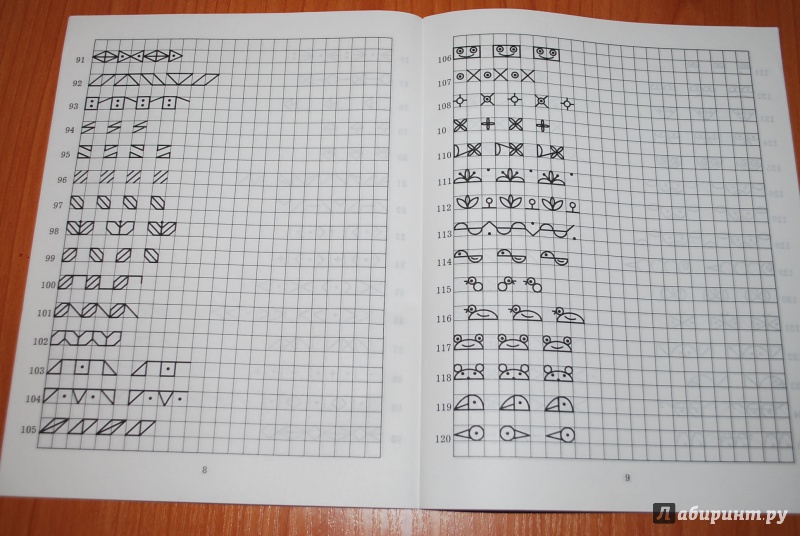 91
92
93
94
95
96
97
98
99
100
101
102
103
104
105
8
106
107
108
10
110
111
112
113
114
115
116
117
118
119
120
9
Лабиринт.ру